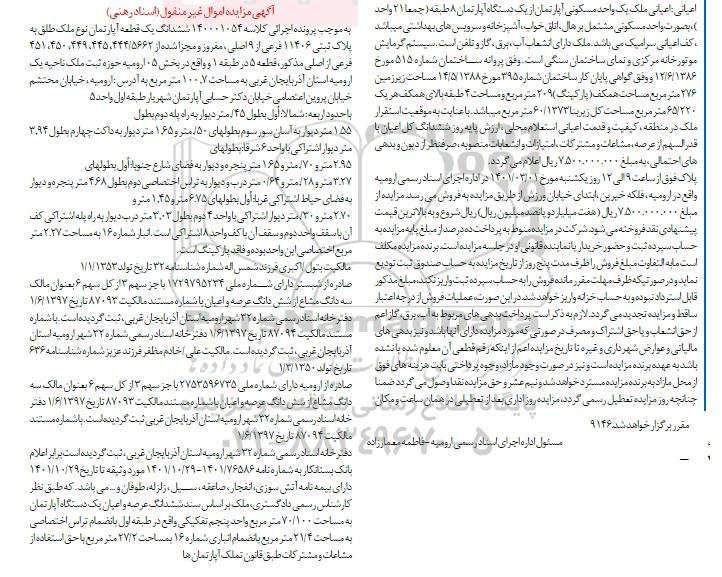 آگهی مزایده اموال غیر منقول (اسناد رهنی)
به موجب پرونده اجرائی کلاسه ۱۴۰۰۰۱۰۵۴ ششدانگ یک قطعه آپارتمان نوع ملک طلق به
پلاک ثبتی ۱۱۴۰۶ فرعی از ۹ اصلی، مفروز و مجزا شده از ۴۴۴/۵۶۶۲، ۴۴۵، ۴۴۹، ۴۵۰، ۴۵۱
فرعی از اصلی مذکور، قطعه ۵ در طبقه ۱ و واقع در بخش ۰۵ ارومیه حوزه ثبت ملک ناحیه یک
ارومیه استان آذربایجان غربی به مساحت ۱۰۰.۷ متر مربع به آدرس: ارومیه، خیابان محتشم
خیابان پروین اعتصامی خیابان دکتر حسابی آپارتمان شهریار طبقه اول واحد ۵
با حدود اربعه: شمالا: أول بطول ۴۵/ متر دیوار به راه پله دوم بطول
۱.۵۵ متر دیوار به آسان سور سوم بطولهای ۵۰/ متر و ۱.۶۵ متر دیوار به داکت چهارم بطول ۳.۹۴
متر دیوار اشتراکی با واحد ۶ شرقا: بطولهای
۲.۹۵ متر و ۷۰/ متر و ۱.۶۵ متر پنجره و دیوار به فضای شارع جنوبا: أول بطولهای
۳.۲۷ متر و ۲۸/ متر و ۰/۶۴ متر درب و دیوار به تراس اختصاصی دوم بطول ۴.۶۸ متر پنجره و دیوار
به فضای حیاط اشتراکی غربا: أول بطولهای ۶.۷۵ متر و ۱.۴۵ متر و
۲.۷۰ متر و ۳۰/ متر دیوار اشتراکی با واحد ۴ دوم بطول ۳.۰۳ متر درب دیوار به راه پله اشتراکی کف
آن با سقف واحد دوم و سقف آن با کف واحد ۸ اشتراکی است. انبار شماره ۱۶ به مساحت ۲.۲۷ متر
مربع اختصاصی این واحد بوده و فاقد پارکینگ است
مالکیت بتول / اکبری فرزند شمس اله شماره شناسنامه ۳۲ تاریخ تولد ۱/۱/۱۳۵۳
صادره از شبستر دارای شماره ملی ۱۷۲۹۷۹۵۲۳۴ با جز سهم ۳ از کل سهم ۶ بعنوان مالک
سه دانگ مشاع از شش دانگ عرصه و اعیان با شماره مستند مالکیت ۸۷۰۹۳ تاریخ ۱/۶/۱۳۹۷
دفترخانه اسناد رسمی شماره ۳۲ شهر ارومیه استان آذربایجان غربی، ثبت گردیده است. با شماره
مستند مالکیت ۸۷۰۹۴ تاریخ ۱/۶/۱۳۹۷ دفترخانه اسناد رسمی شماره ۳۲ شهر ارومیه استان
آذربایجان غربی، ثبت گردیده است. مالکیت علی / خادم مظفر فرزند عزیز شماره شناسنامه ۶۳۶
تاریخ تولد ۱/۳/۱۳۵۰
صادره از ارومیه دارای شماره ملی ۲۷۵۳۵۹۶۷۳۵ با جز سهم ۳ از کل سهم ۶ بعنوان مالک سه
دانگ مشاع از شش دانگ عرصه و اعیان با شماره مستند مالکیت ۸۷۰۹۳ تاریخ ۱/۶/۱۳۹۷ دفتر
خانه اسناد رسمی شماره ۳۲ شهر ارومیه استان آذربایجان غربی ثبت گردیده است. با شماره مستند
مالکیت ۸۷۰۹۴ تاریخ ۱/۶/۱۳۹۷
دفترخانه اسناد رسمی شماره ۳۲ شهر ارومیه استان آذربایجان غربی، ثبت گردیده است برابر اعلام
بانک بستانکار به شماره نامه ۱۴۰۱/۷۶۵۸۶-۱۴۰۱/۱۰/۲۹ مورد وثیقه تا تاریخ ۱۴۰۱/۱۰/۲۹
دارای بیمه نامه آتش سوزی، انفجار، صاعقه، سیل، زلزله، طوفان و ... می باشد. که طبق نظر
کارشناس رسمی دادگستری، ملک بر اساس سند ششدانگ عرصه و اعیان یک دستگاه آپارتمان
به مساحت ۷۰/۱۰۰ متر مربع واحد پنجم تفکیکی واقع در طبقه اول بانضمام تراس اختصاصی
به مساحت ۲۱/۴ متر مربع بانضمام انباری شماره ۱۶ بمساحت ۲۷/۲ متر مربع با حق استفاده از
مشاعات و مشترکات طبق قانون تملک آپارتمان ها
اعیانی: اعیانی ملک یک واحد مسکونی آپارتمان از یک دستگاه آپارتمان ۸ طبقه (جمعا ۲۱ واحد
)، بصورت واحد مسکونی مشتمل بر هال، اتاق خواب، آشپزخانه و سرویس های بهداشتی میباشد
، کف اعیانی سرامیک می باشد. ملک دارای انشعاب آب، برق، گاز و تلفن است. سیستم گرمایش
موتورخانه مرکزی و نمای ساختمان سنگی است. وفق پروانه ساختمان شماره ۵۱۵ مورخ
۱۲/۶/۱۳۸۶ و وفق گواهی پایان کار ساختمان شماره ۳۹۵ مورخ ۱۴/۵/۱۳۸۸ مساحت زیرزمین
۲۷۶ متر مربع مساحت همکف (پارکینگ) ۲۰۹ متر مربع و مساحت ۴ طبقه بالای همکف هر یک
۶۵/۲۲۰ متر مربع مساحت کل زیربنا ۶۰/۱۳۷۳ متر مربع میباشد. با عنایت به موقعیت استقرار
ملک در منطقه، کیفیت و قدمت اعیانی استعلام محلی، ارزش پایه روز ششدانگ کل اعیان با
قدر السهم از عرصه، مشاعات و مشترکات، امتیازات و انشعابات منصوبه، صرفنظر از دیون و بدهی
های احتمالی، به مبلغ ۷.۵۰۰.۰۰۰.۰۰۰ ریال اعلام می گردد.
پلاک فوق از ساعت ۹ الی ۱۲ روز یکشنبه مورخ ۱۴۰۱/۰۳/۰۱ در اداره اجرای اسناد رسمی ارومیه
واقع در ارومیه، فلکه خیرین، ابتدای خیابان ورزش از طریق مزایده به فروش می رسد. مزایده از
مبلغ ۷.۵۰۰.۰۰۰.۰۰۰ ریال (هفت میلیارد و پانصد میلیون ریال) ریال شروع و به بالاترین قیمت
پیشنهادی نقدا فروخته می شود. شرکت در مزایده منوط به پرداخت ده درصد از مبلغ پایه مزایده به
حساب سپرده ثبت و حضور خریدار یا نماینده قانونی او در جلسه مزایده است. برنده مزایده مکلف
است مابه التفاوت مبلغ فروش را ظرف مدت پنج روز از تاریخ مزایده به حساب صندوق ثبت تودیع
نماید و در صورتیکه ظرف مهلت مقرر مانده فروش را به حساب سپرده ثبت واریز نکند، مبلغ مذکور
قابل استرداد نبوده و به حساب خزانه واریز خواهد شد. در این صورت، عملیات فروش از درجه اعتبار
ساقط و مزایده تجدید می گردد. لازم به ذکر است پرداخت بدهی های مربوط به آب، برق، گاز اعم
از حق انشعاب و یا حق اشتراک و مصرف در صورتی که مورد مزایده دارای آنها باشد و نیز بدهی های
مالیاتی و عوارض شهرداری و غیره تا تاریخ مزایده اعم از اینکه رقم قطعی آن معلوم شده یا نشده
باشد به عهده برنده مزایده است و نیز در صورت وجود مازاد، وجوه پرداختی بابت هزینه های فوق
از محل مازاد به برنده مزایده مسترد خواهد شد و نیم عشر و حق مزایده نقدا وصول می گردد. ضمنا
چنانچه روز مزایده تعطیل رسمی گردد، مزایده روز اداری بعد از تعطیلی در همان ساعت و مکان
مقرر برگزار خواهد شد. ۹۱۴۶
مسئول اداره اجرای اسناد رسمی ارومیه - فاطمه معمارزاده